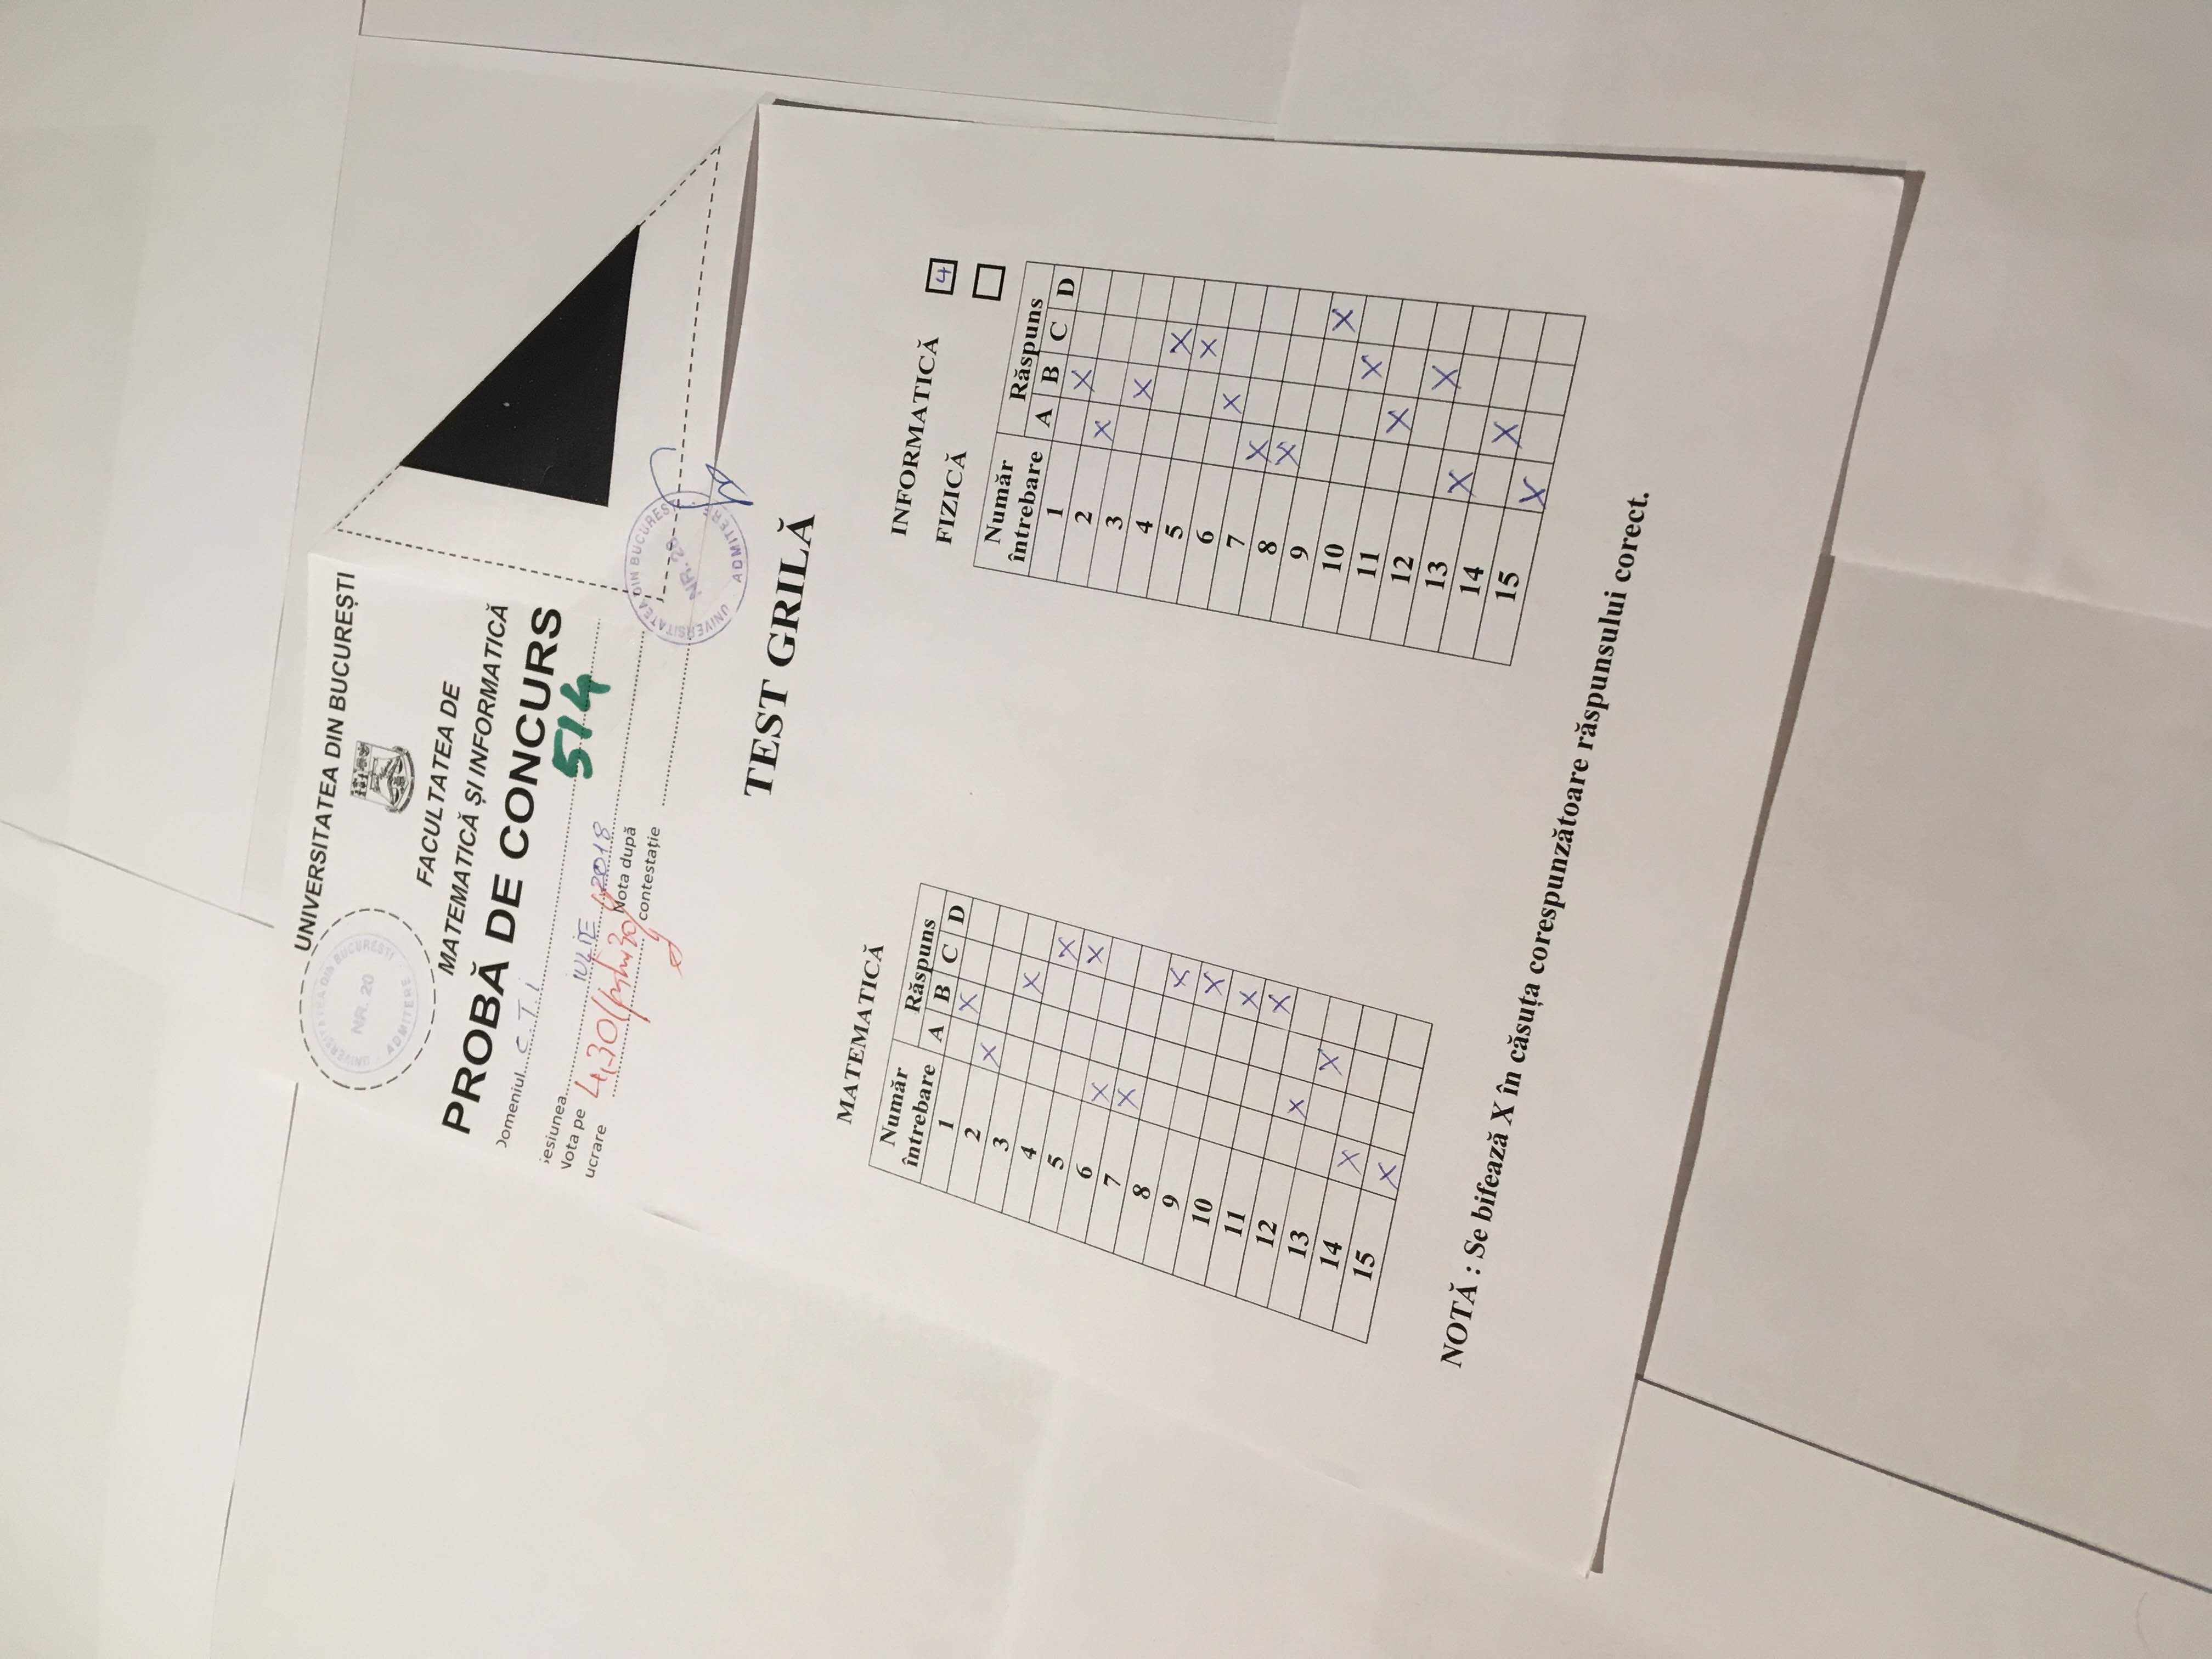 UNIVERSITATEA DIN BUCUREȘTI
UNIVERSITATEA DIN BUCUREȘTI
NR. 20
ADMITERE
FACULTATEA DE
MATEMATICĂ ȘI INFORMATICĂ
PROBĂ DE CONCURS
Domeniul C.T.I
514
Sesiunea IULIE 2018
Nota pe lucrare 4,30
Nota după contestație
UNIVERSITATEA DIN BUCUREȘTI
NR. 20
ADMITERE
TEST GRILĂ
MATEMATICĂ
Număr întrebare Răspuns
A B C D
1 X
2 X
3 X
4 X
5 X
6 X
7 X
8 X
9 X
10 X
11 X
12 X
13 X
14 X
15 X
INFORMATICĂ 4
FIZICĂ
Număr întrebare Răspuns
A B C D
1 X
2 X
3 X
4 X
5 X
6 X
7 X
8 X
9 X
10 X
11 X
12 X
13 X
14 X
15 X
NOTĂ : Se bifează X în căsuța corespunzătoare răspunsului corect.